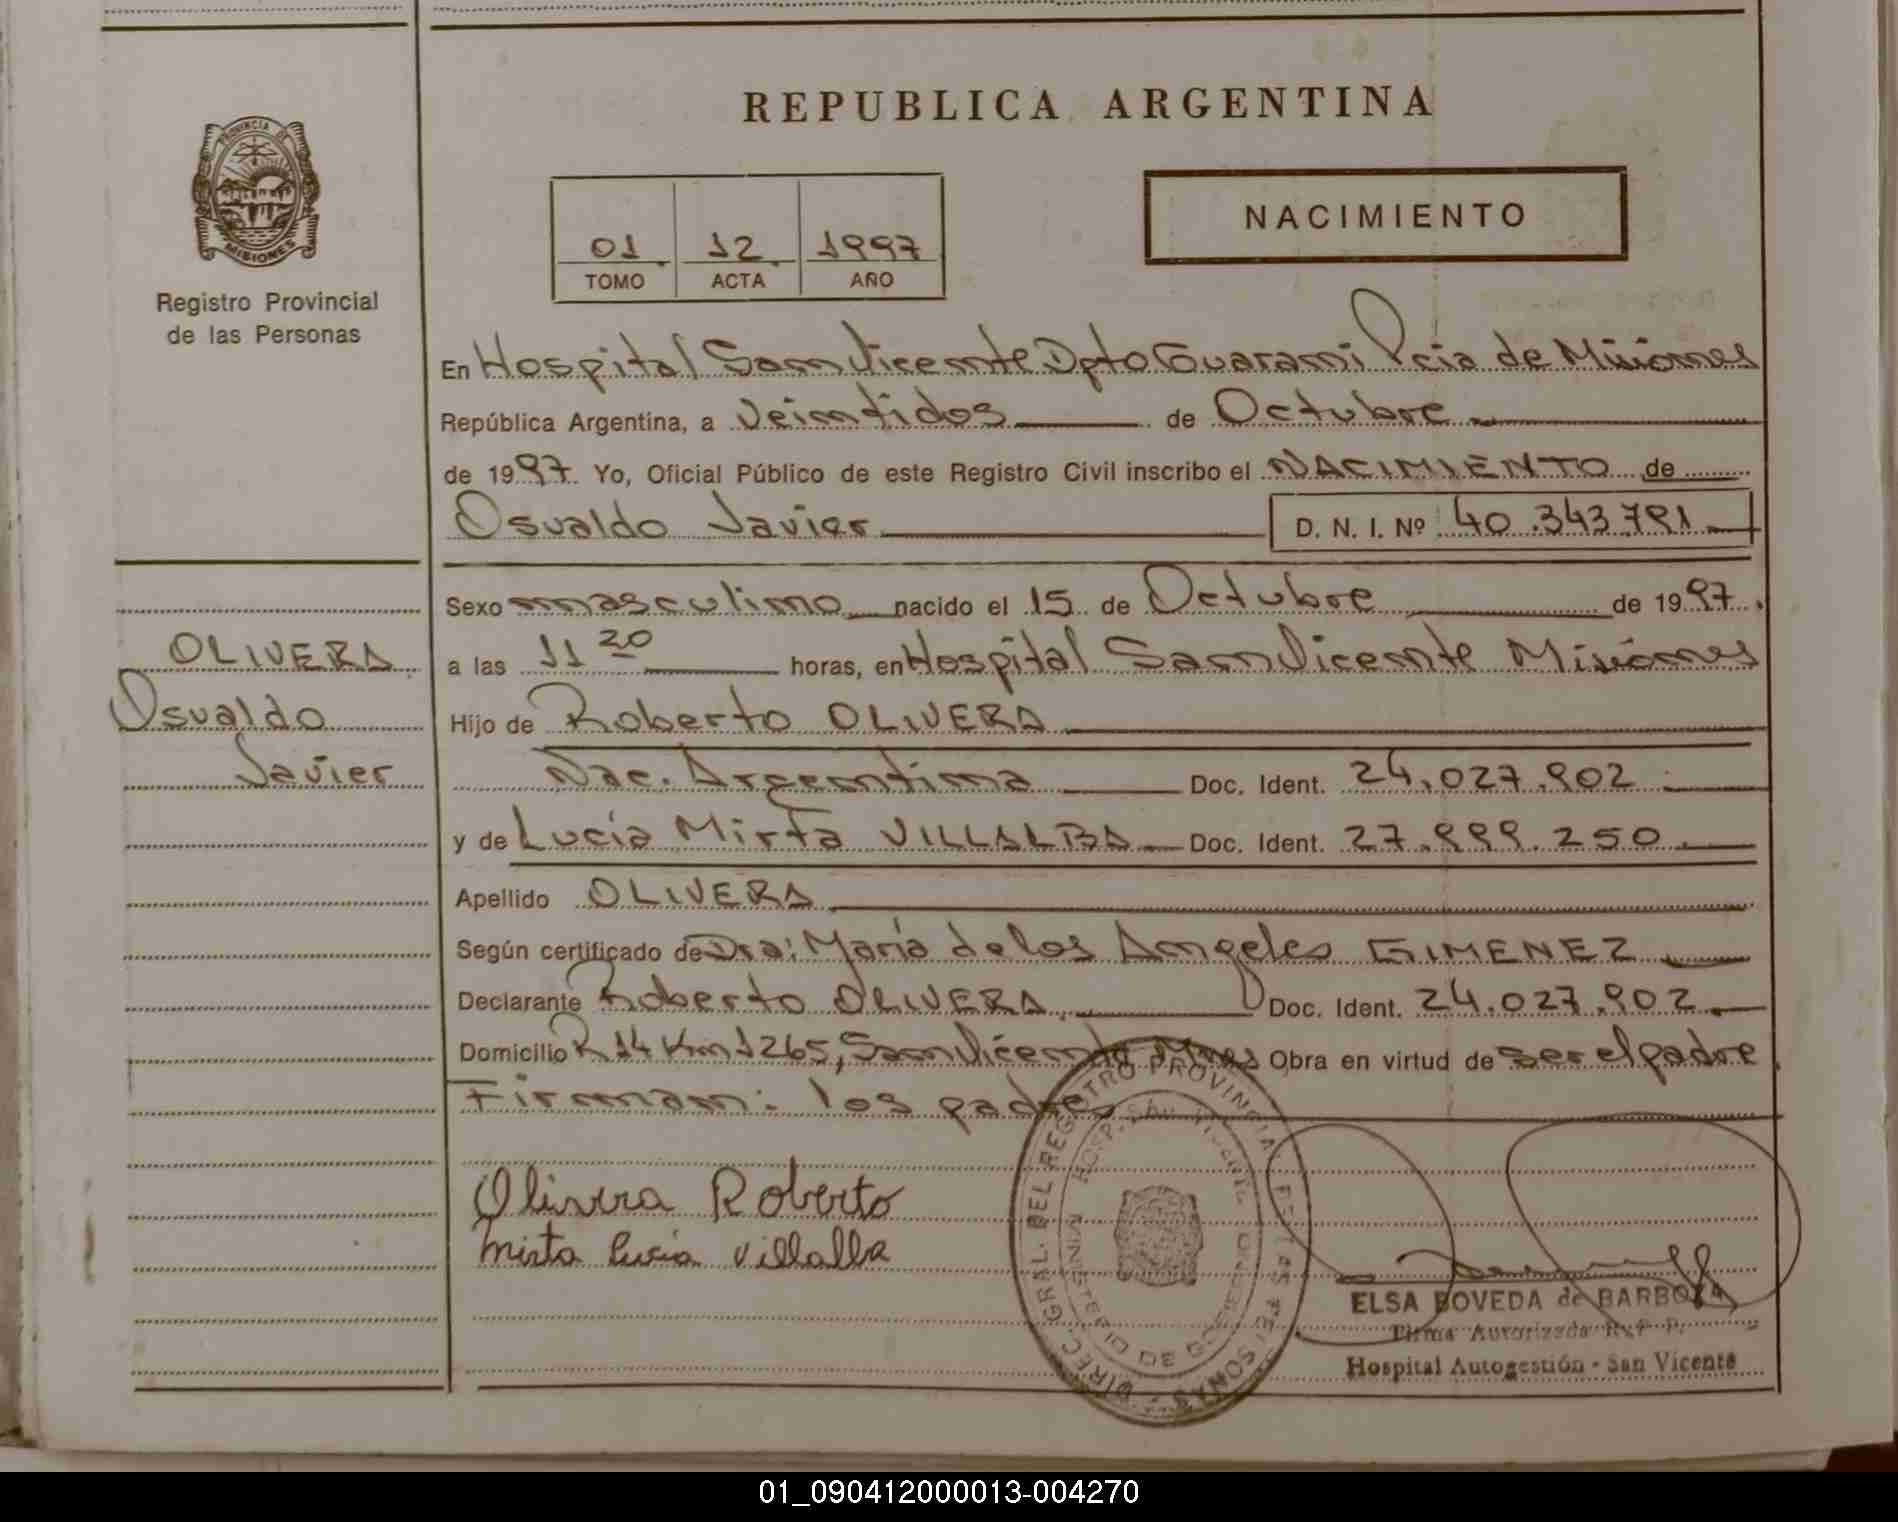 REPUBLICA ARGENTINA
PROVINCIA DE
MISIONES
Registro Provincial
de las Personas
01 12 1997
TOMO ACTA AÑO
NACIMIENTO
En Hospital San Vicente Dpto Guarani Pcia de Misiones
República Argentina, a veintidos de Octubre
de 1997. Yo, Oficial Público de este Registro Civil inscribo el NACIMIENTO de
Osvaldo Javier D. N. I. Nº 40.343.791
Sexo masculino nacido el 15 de Octubre de 1997.
a las 11 20 horas, en Hospital San Vicente Misiones
Hijo de Roberto OLIVERA
Nac. Argentina Doc. Ident. 24.027.902
y de Lucía Mirta VILLALBA Doc. Ident. 27.999.250
Apellido OLIVERA
Según certificado de Dra: María de los Angeles GIMENEZ
Declarante Roberto OLIVERA Doc. Ident. 24.027.902
Domicilio R 14 Km 1265, San Vicente Mnes Obra en virtud de ser el padre
Firman: los padres
OLIVERA
Osvaldo
Javier
Olivera Roberto
Mirta Lucia Villalba
DIREC. GRAL. DEL REGISTRO PROVINCIAL DE LAS PERSONAS
HOSP. San Vicente
MINISTERIO DE GOBIERNO
ELSA BOVEDA de BARBOZA
Firma Autorizada R.P.P.
Hospital Autogestión - San Vicente
01_090412000013-004270